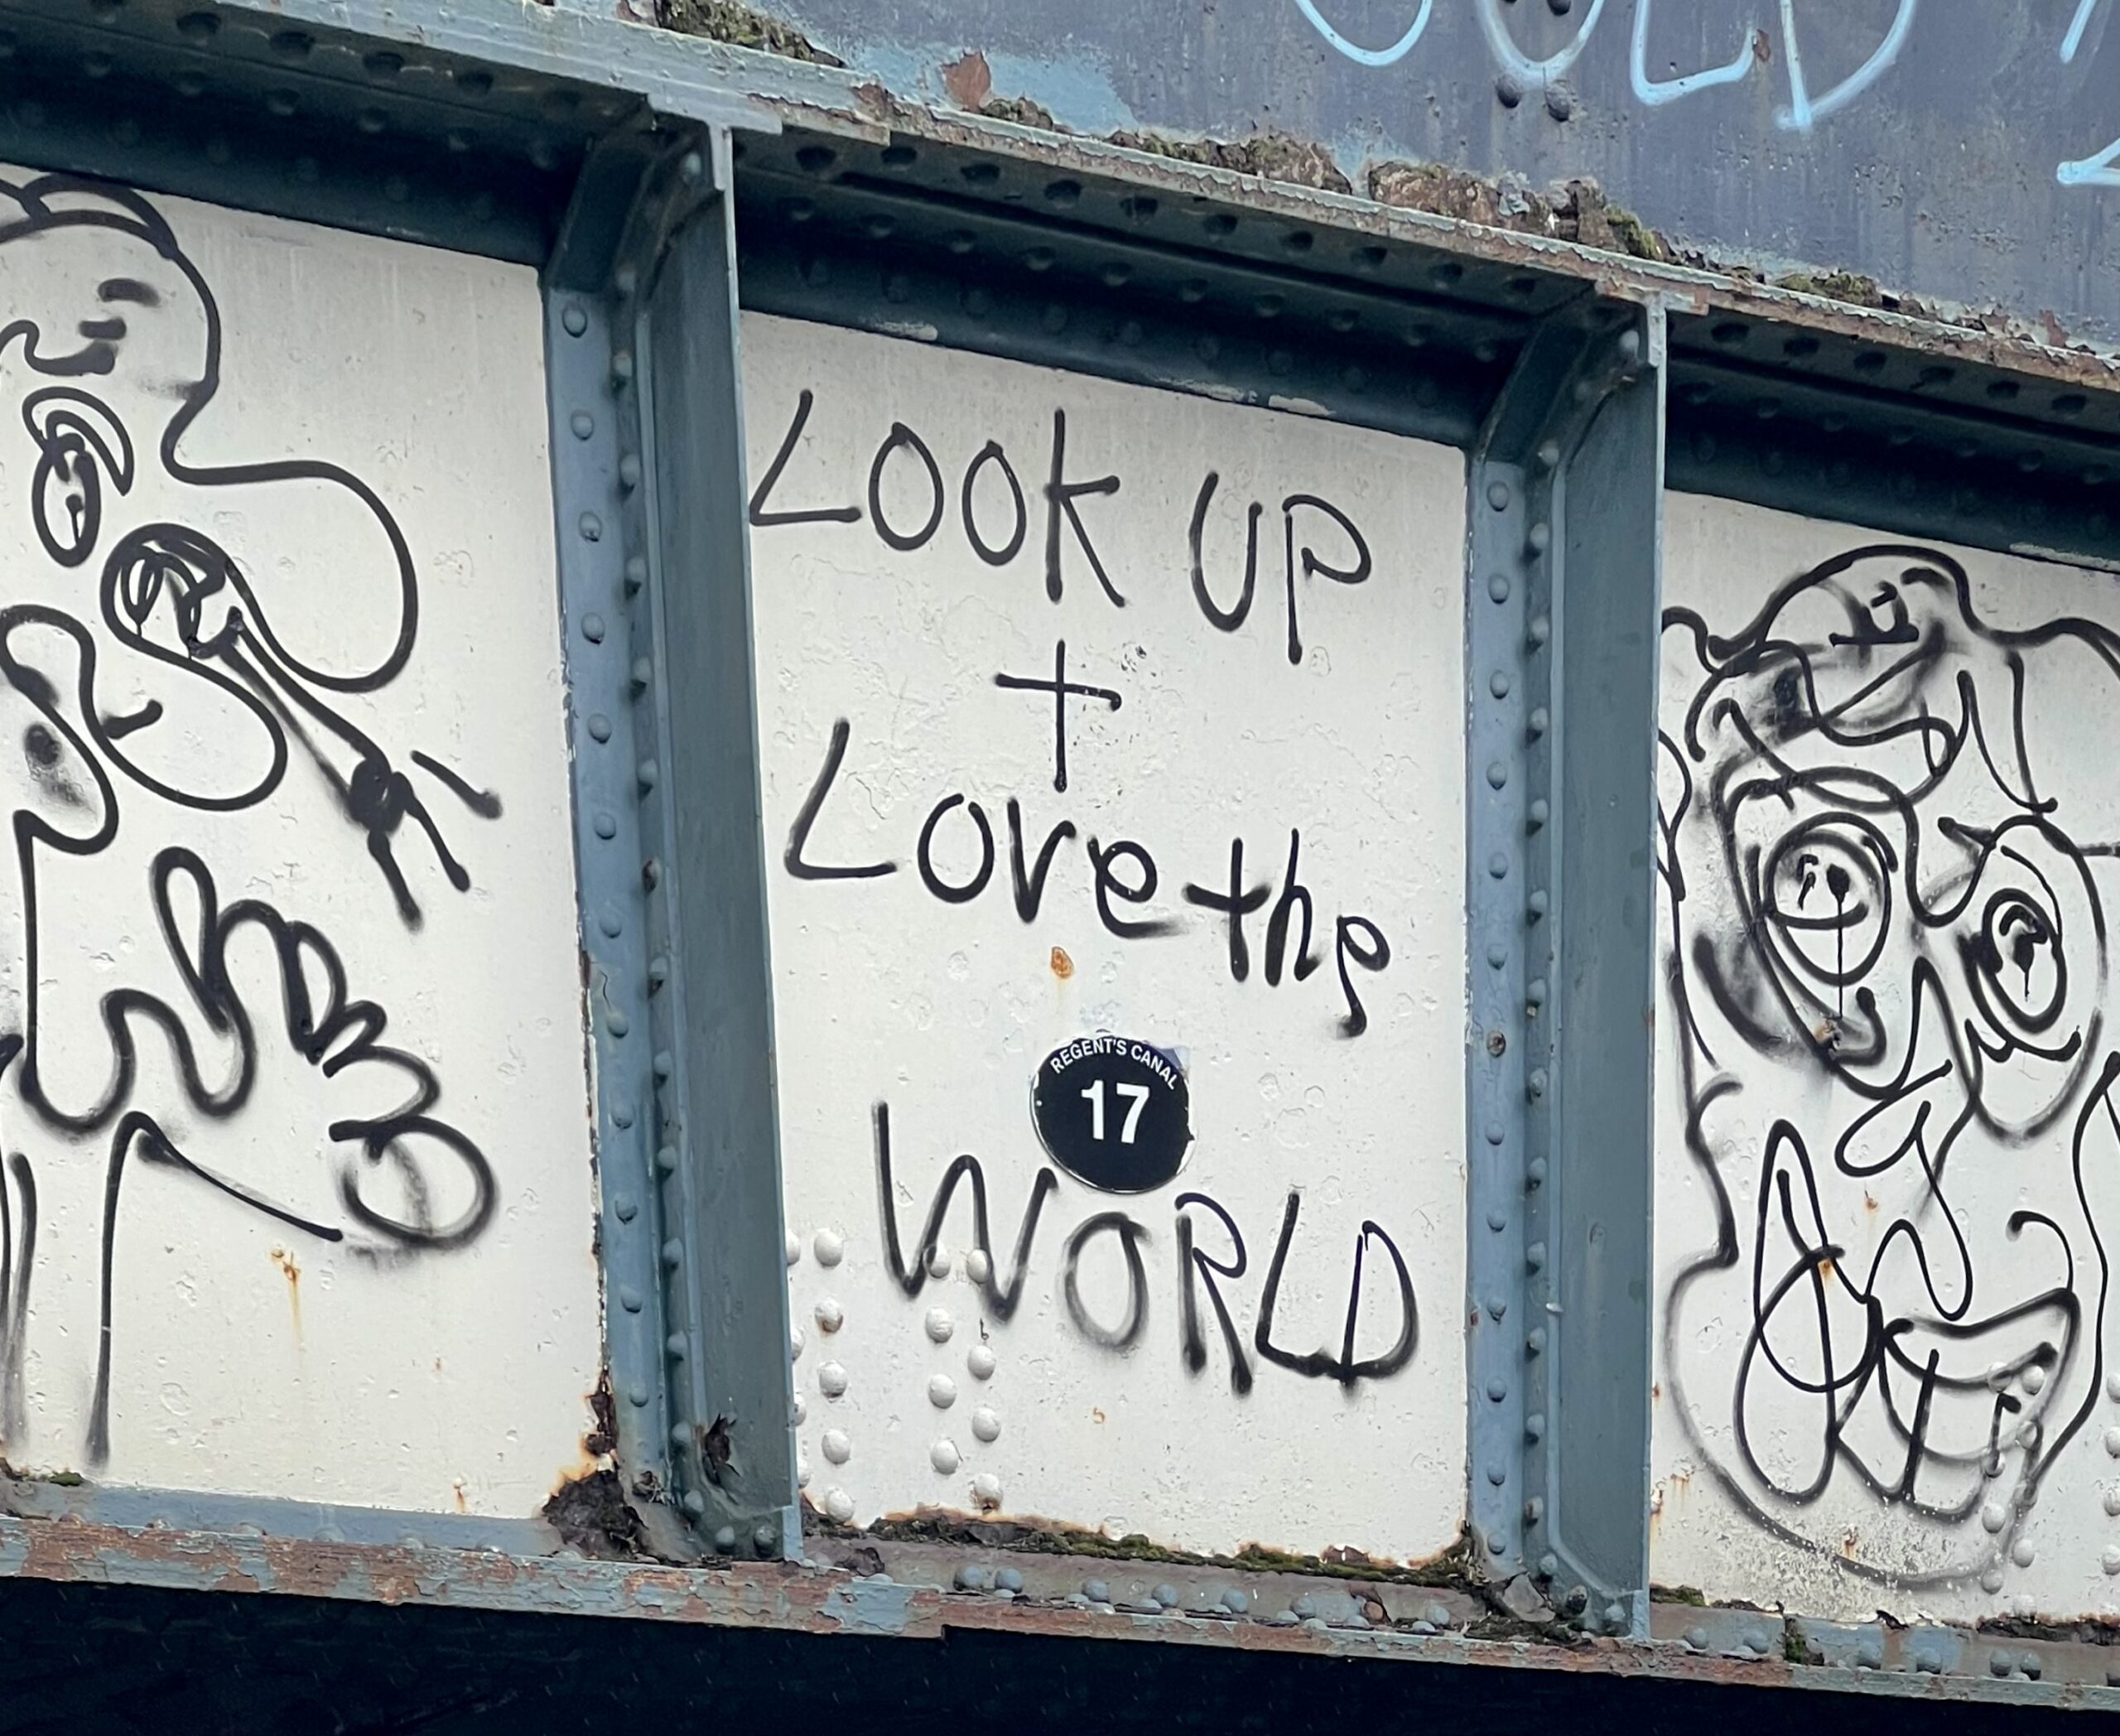 LOOK UP
+
Love the
REGENT'S CANAL
17
WORLD